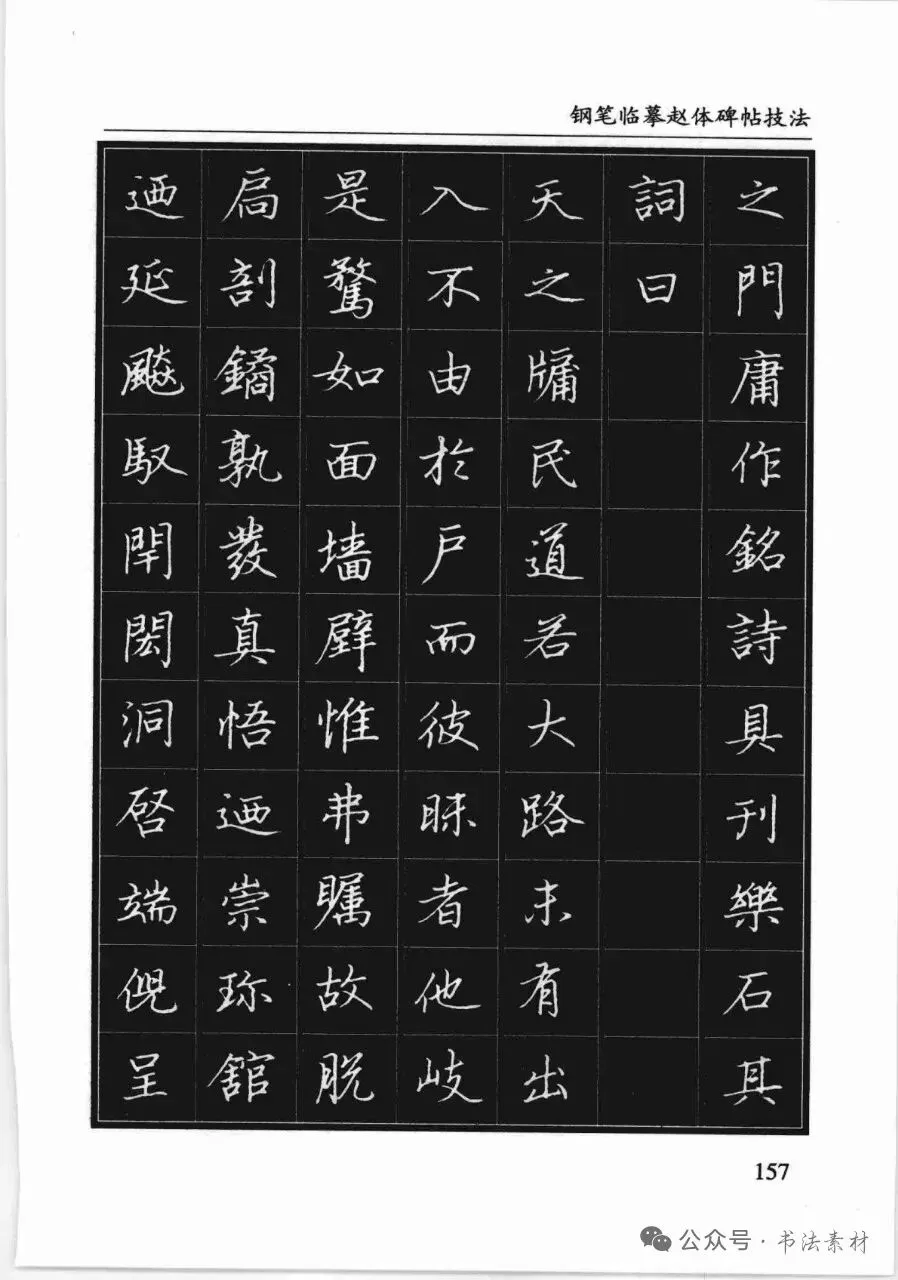 钢笔临摹赵体碑帖技法
之門庸作銘詩具刊樂石其
詞曰
天之牖民道若大路未有出
入不由於戶而彼昧者他岐
是騖如面墙壁惟弗矚故脱
扃剖鐍孰發真悟迺崇珎舘
迺延飈馭閈閎洞啓端倪呈
157
公众号·书法素材